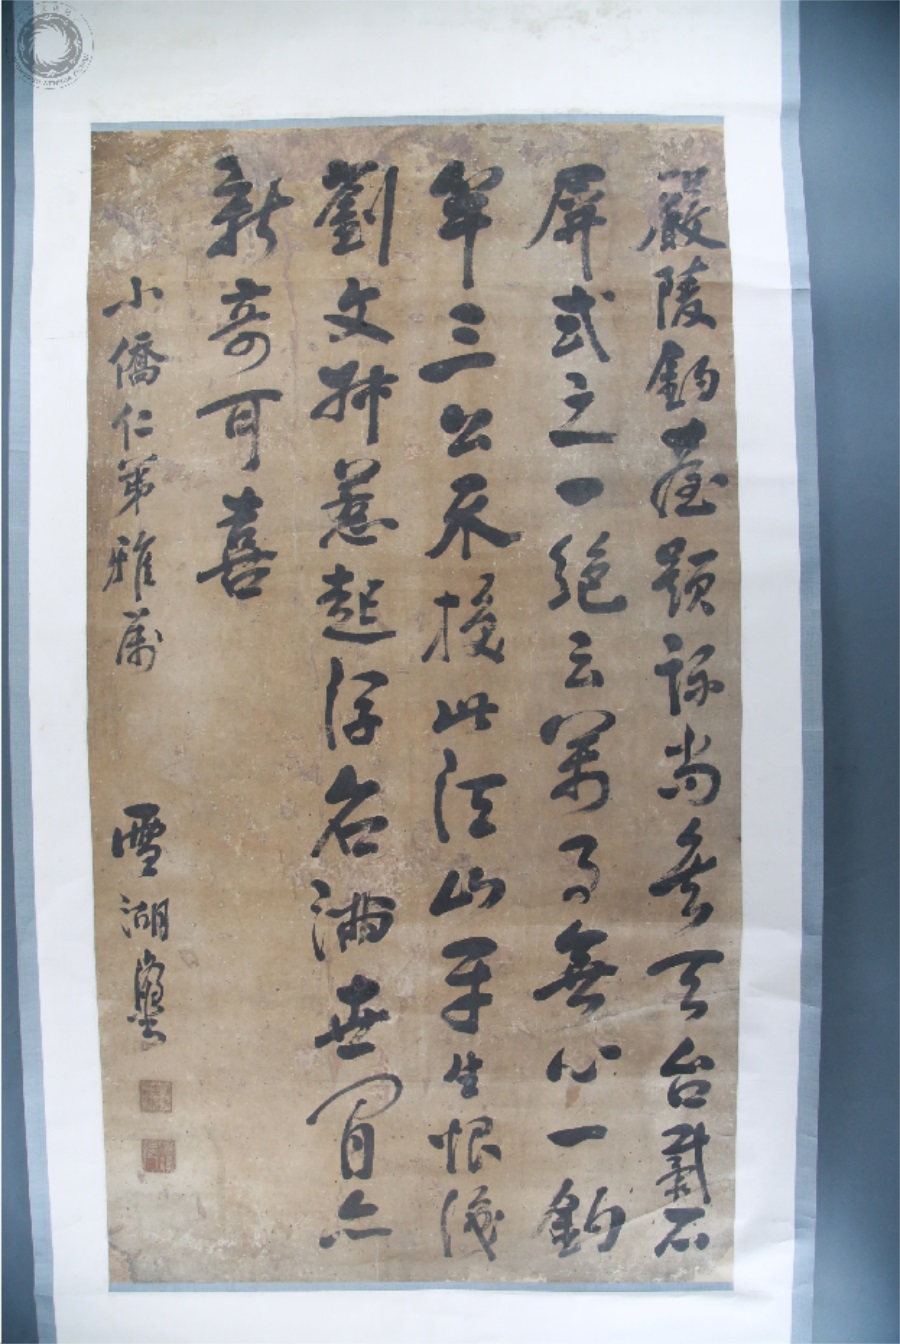 嚴陵釣臺題詠尚矣天台戴石
屏式之一絕云萬事無心一釣
竿三公不換此江山平生恨識
劉文叔惹起浮名滿世間亦
新奇可喜
小僑仁弟雅屬
雪湖鑾